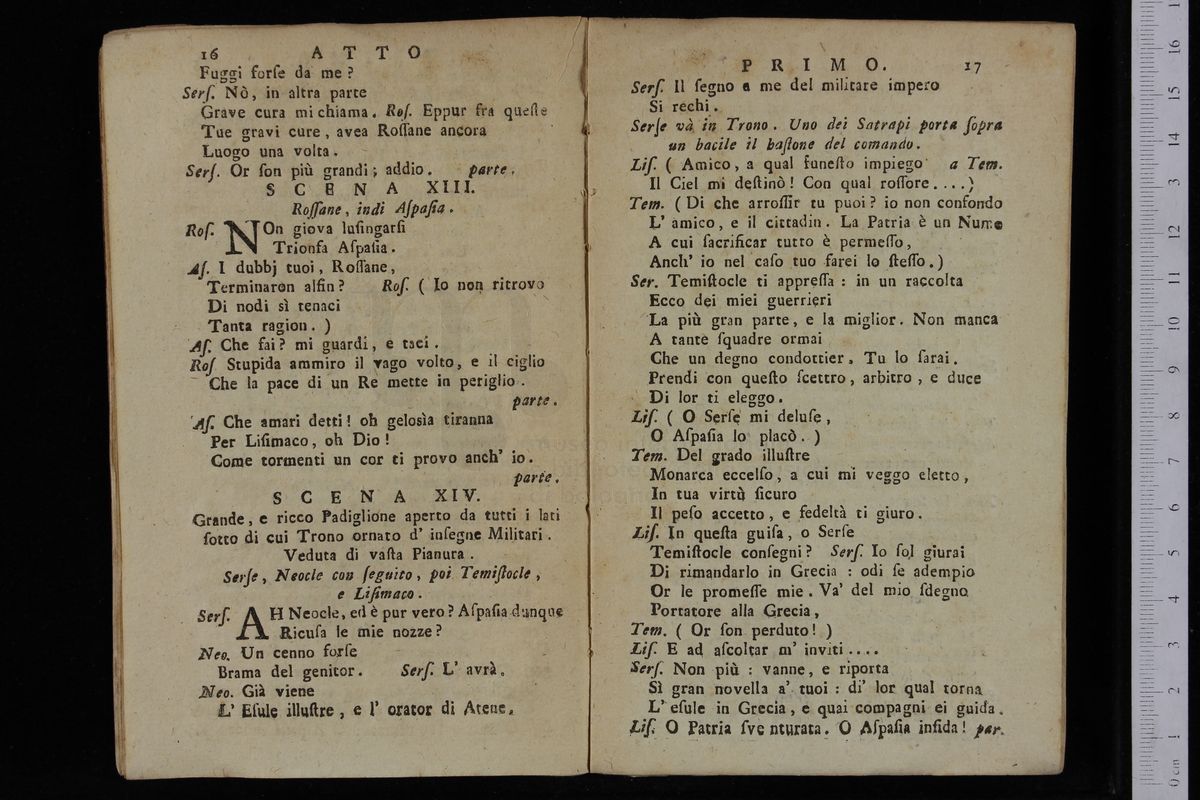 16 ATTO
Fuggi forſe da me?
Serſ. Nò, in altra parte
Grave cura mi chiama. Roſ. Eppur fra queſte
Tue gravi cure, avea Roſſane ancora
Luogo una volta.
Serſ. Or ſon più grandi; addio. parte.
SCENA XIII.
Roſſane, indi Aſpaſia.
Roſ. NOn giova luſingarſi
Trionfa Aſpaſia.
Aſ. I dubbj tuoi, Roſſane,
Terminaron alfin? Roſ. ( Io non ritrovo
Di nodi sì tenaci
Tanta ragion. )
Aſ. Che fai? mi guardi, e taci.
Roſ Stupida ammiro il vago volto, e il ciglio
Che la pace di un Re mette in periglio.
parte.
Aſ. Che amari detti! oh gelosìa tiranna
Per Liſimaco, oh Dio!
Come tormenti un cor ti provo anch' io.
parte.
SCENA XIV.
Grande, e ricco Padiglione aperto da tutti i lati
ſotto di cui Trono ornato d' inſegne Militari.
Veduta di vaſta Pianura.
Serſe, Neocle con ſeguito, poi Temiſtocle,
e Liſimaco.
Serſ. AH Neocle, ed è pur vero? Aſpaſia dunque
Ricuſa le mie nozze?
Neo. Un cenno forſe
Brama del genitor. Serſ. L' avrà.
Neo. Già viene
L' Eſule illuſtre, e l' orator di Atene.
PRIMO. 17
Serſ. Il ſegno a me del militare impero
Si rechi.
Serſe và in Trono. Uno dei Satrapi porta ſopra
un bacile il baſtone del comando.
Liſ. ( Amico, a qual funeſto impiego a Tem.
Il Ciel mi deſtinò! Con qual roſſore....)
Tem. ( Di che arroſſir tu puoi? io non confondo
L' amico, e il cittadin. La Patria è un Nume
A cui ſacrificar tutto è permeſſo,
Anch' io nel caſo tuo farei lo ſteſſo.)
Ser. Temiſtocle ti appreſſa : in un raccolta
Ecco dei miei guerrieri
La più gran parte, e la miglior. Non manca
A tante ſquadre ormai
Che un degno condottier. Tu lo ſarai.
Prendi con queſto ſcettro, arbitro, e duce
Di lor ti eleggo.
Liſ. ( O Serſe mi deluſe,
O Aſpaſia lo placò. )
Tem. Del grado illuſtre
Monarca eccelſo, a cui mi veggo eletto,
In tua virtù ſicuro
Il peſo accetto, e fedeltà ti giuro.
Liſ. In queſta guiſa, o Serſe
Temiſtocle conſegni? Serſ. Io ſol giurai
Di rimandarlo in Grecia : odi ſe adempio
Or le promeſſe mie. Va' del mio ſdegno
Portatore alla Grecia,
Tem. ( Or ſon perduto! )
Liſ. E ad aſcoltar m' inviti....
Serſ. Non più : vanne, e riporta
Sì gran novella a' tuoi : di' lor qual torna
L' eſule in Grecia, e quai compagni ei guida.
Liſ. O Patria ſventurata. O Aſpaſia infida! par.
0 cm 1 2 3 4 5 6 7 8 9 10 11 12 13 14 15 16